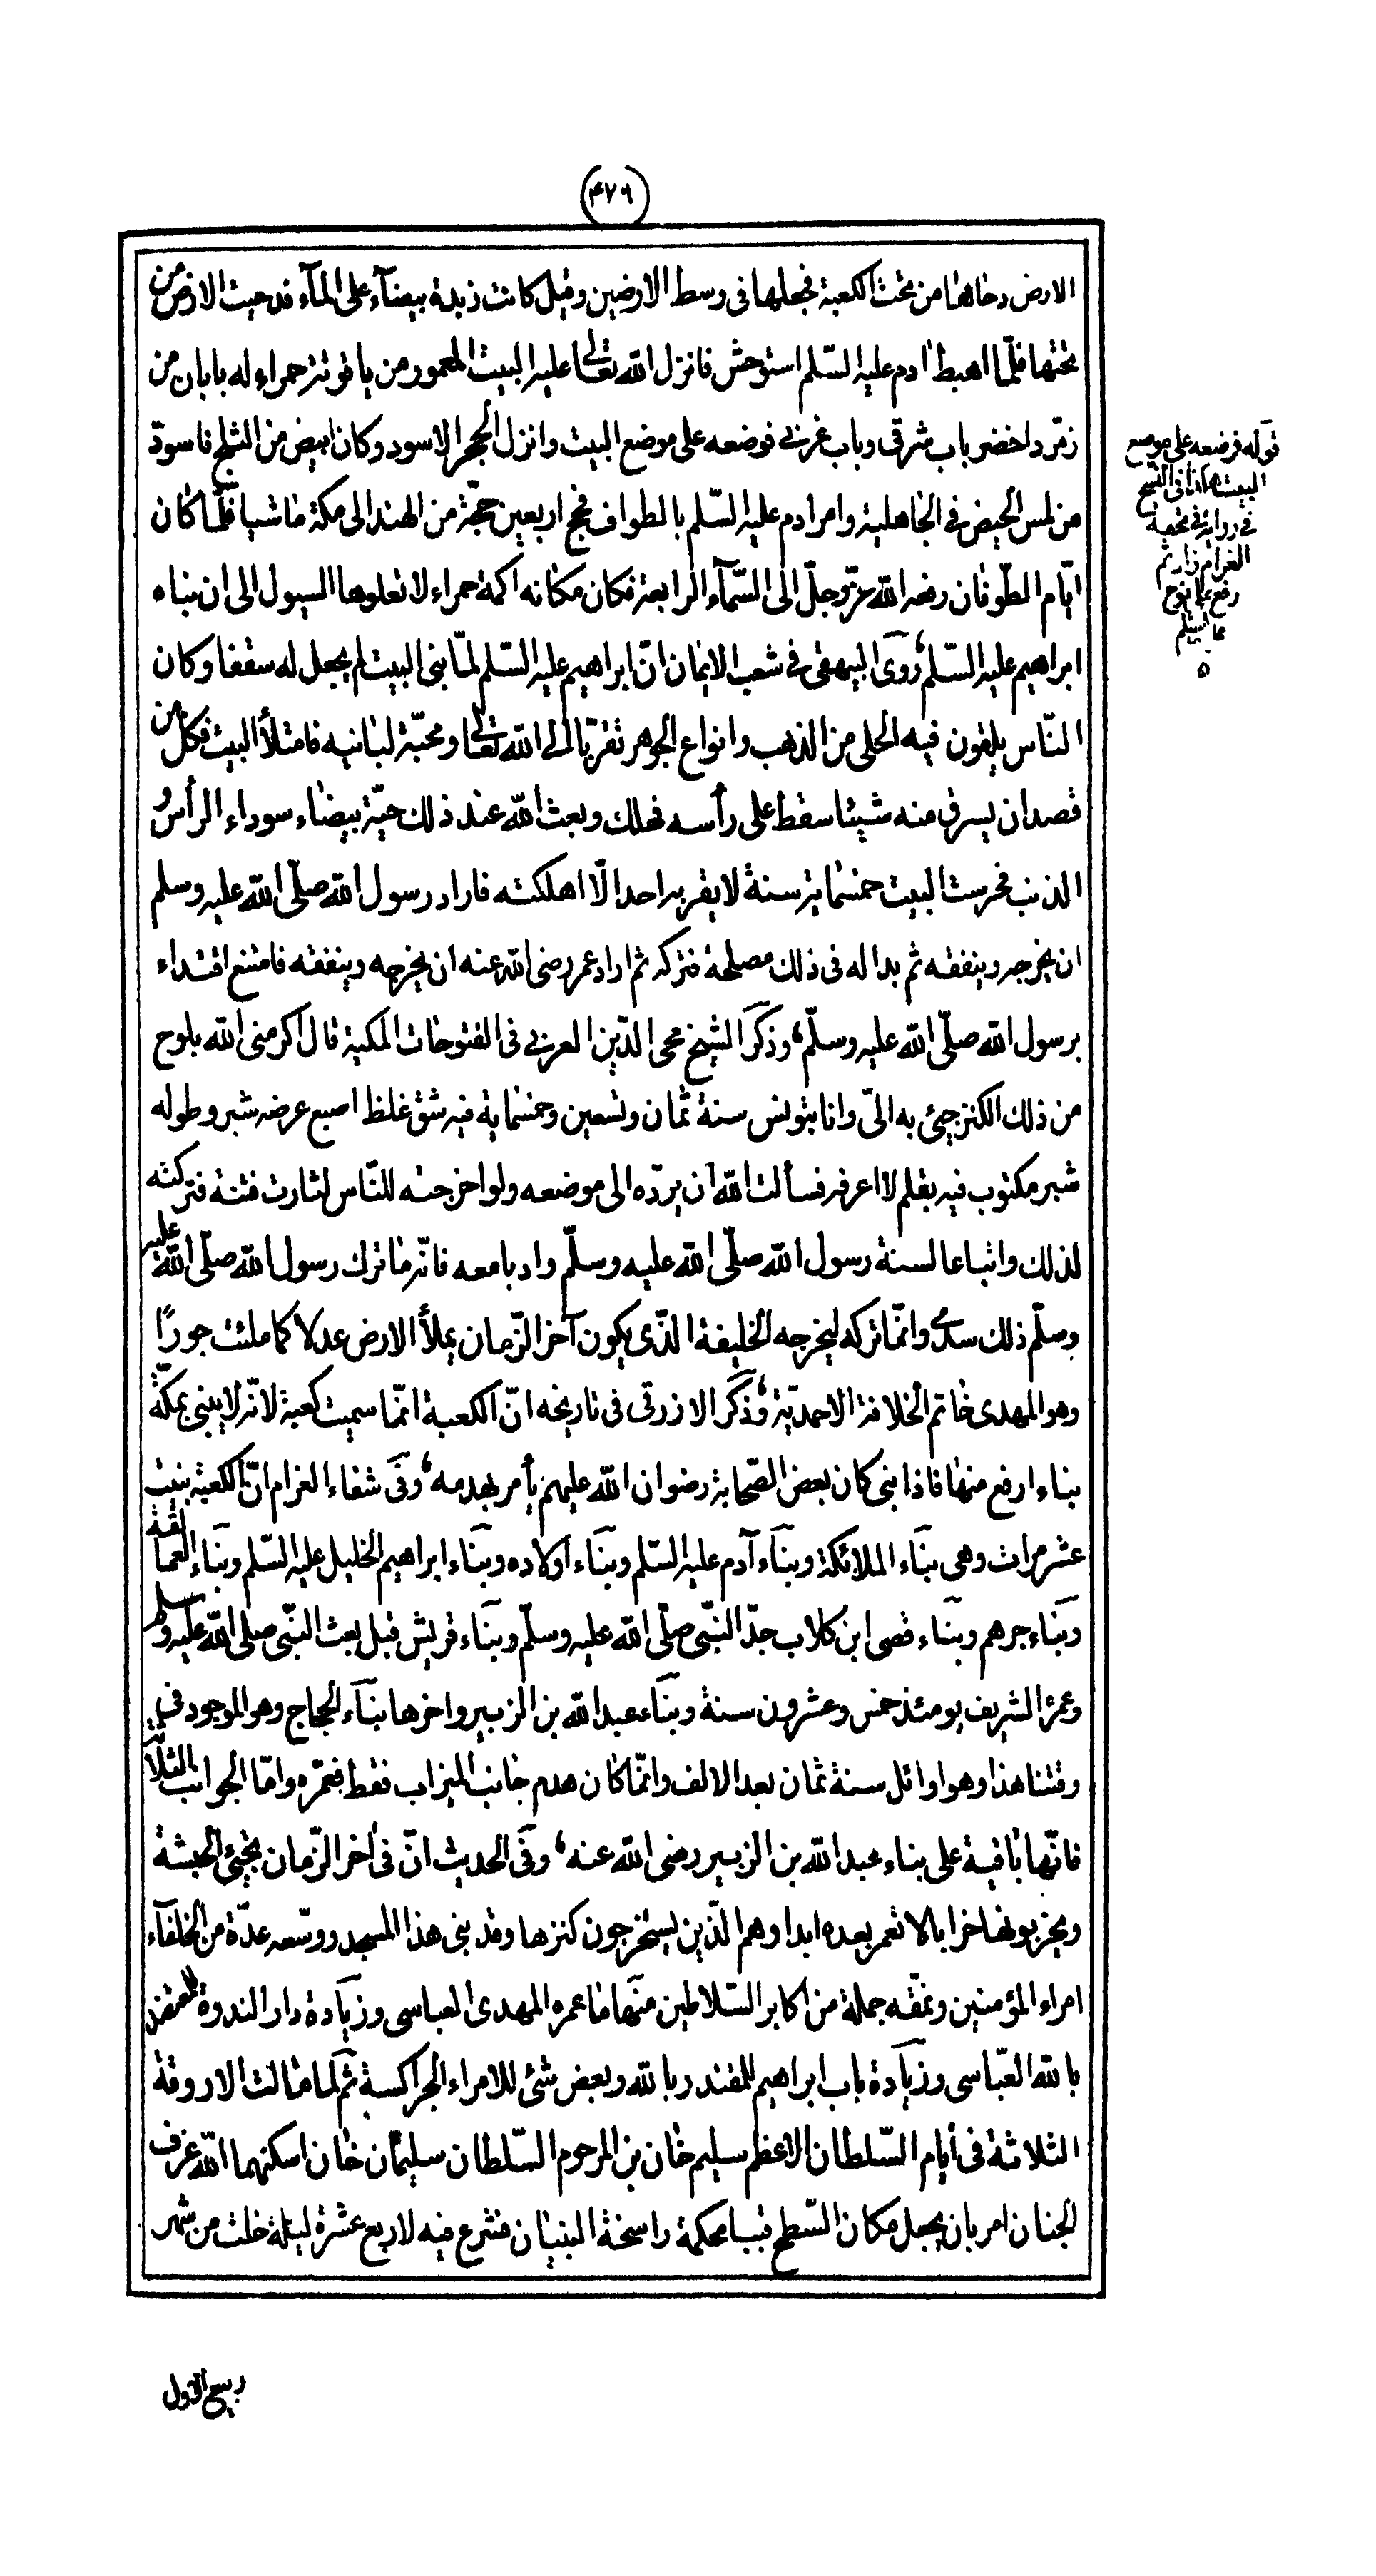 (٤٧٩)
الارض دحاها من تحت الكعبة فجعلها فى وسط الارضين وقيل كانت زبدة بيضآء على المآء فدحيت الارض من
تحتها فلمّا اهبط ادم عليه السّلم استوحش فانزل الله تعالى عليه البيت المعمور من ياقوتة حمراء له بابان من
زمرد اخضر باب شرقى وباب غربى فوضعه على موضع البيت وانزل الحجر الاسود وكان ابيض من الثلج فاسودّ
من لمس الحيض فى الجاهلية وامر ادم عليه السّلم بالطواف فحج اربعين حجّة من الهند الى مكة ماشيا فلمّا كان
ايّام الطّوفان رفعه الله عزّ وجلّ الى السّمآء الرابعة فكان مكانه اكمة حمراء لا تعلوها السيول الى ان بناه
ابراهيم عليه السّلم ؛ روى البيهقى فى شعب الايمان انّ ابراهيم عليه السّلم لمّا بنى البيت لم يجعل له سقفا وكان
النّاس يلقون فيه الحلى من الذهب وانواع الجوهر تقربّا الى الله تعالى ومحبّة لبانيه فامتلأ البيت فكل من
قصد ان يسرق منه شيئا سقط على رأسه فهلك وبعث الله عند ذلك حيّة بيضاء سوداء الرأس و
الذنب فحرست البيت خمسماية سنة لا يقربه احد الّا اهلكته فاراد رسول الله صلّى الله عليه وسلم
ان يخرجه وينفقه ثم بدا له فى ذلك مصلحة فتركه ثم اراد عمر رضى الله عنه ان يخرجه وينفقه فامتنع اقتداء
برسول الله صلّى الله عليه وسلّم ؛ وذكر الشيخ محى الدّين العربى فى الفتوحات المكية قال اكرمنى الله بلوح
من ذلك الكنز جيئ به الىّ وانا بتونس سنة ثمان وتسعين وخمسماية فيه شق غلظ اصبع عرضه شبر وطوله
شبر مكتوب فيه بقلم لا اعرفه فسألت الله ان يردّه الى موضعه ولو اخرجته للنّاس لثارت فتنة فتركته
لذلك واتباعا لسنة رسول الله صلّى الله عليه وسلّم وادبا معه فانّه ما ترك رسول الله صلّى الله عليه
وسلّم ذلك سدى وانّما تركه ليخرجه الخليفة الذّى يكون آخر الزّمان يملأ الارض عدلا كما ملئت جورًا
وهو المهدى خاتم الخلافة الاحمديّة ؛ وذكر الازرقى فى تاريخه انّ الكعبة انّما سميت كعبة لانّه لا يبنى بمكّة
بناء ارفع منها فاذا بنى كان بعض الصّحابة رضوان الله عليهم يأمر بهدمه ؛ وفى شفاء الغرام انّ الكعبة بنيت
عشر مرات وهى بناء الملائكة وبناء آدم عليه السّلم وبناء اولاده وبناء ابراهيم الخليل عليه السّلم وبناء العمالقة
وبناء جرهم وبناء قصى ابن كلاب جدّ النّبى صلّى الله عليه وسلّم وبناء قريش قبل بعث النّبى صلى الله عليه وسلم
وعمره الشريف يومئذ خمس وعشرون سنة وبناء عبد الله بن الزبير واخرها بنآء الحجاج وهو الموجود فى
وقتنا هذا وهو اوائل سنة ثمان بعد الالف وانّما كان هدم جانب الميزاب فقط فعمّره وامّا الجوانب الثلاثة
فانّها باقية على بناء عبد الله بن الزبير رضى الله عنه ؛ وفى الحديث انّ فى اخر الزّمان يجيئ الحبشة
ويخربونها خرابا لا تعمر بعده ابدا وهم الذّين يستخرجون كنزها وقد بنى هذا المسجد ووسّعه عدّة من الخلفآء
امراء المؤمنين ونمّقه جملة من اكابر السّلاطين منها ما عمره المهدى العباسى وزيادة دار الندوة للمعتضد
بالله العبّاسى وزيادة باب ابراهيم للمقتدر بالله وبعض شئ للامراء الجراكسة ثم لما مالت الاروقة
الثلاثة فى أيام السّلطان الاعظم سليم خان بن المرحوم السّلطان سليمان خان اسكنهما الله غرف
الجنان امر بان يجعل مكان السّطح قببا محكمة راسخة البنيان فشرع فيه لاربع عشرة ليلة خلت من شهر
ربيع الاول
قوله فوضعه على موضع
البيت هكذا فى النسخ
فى رواية فى تحصيل
الغرام زاد ثم
رفع